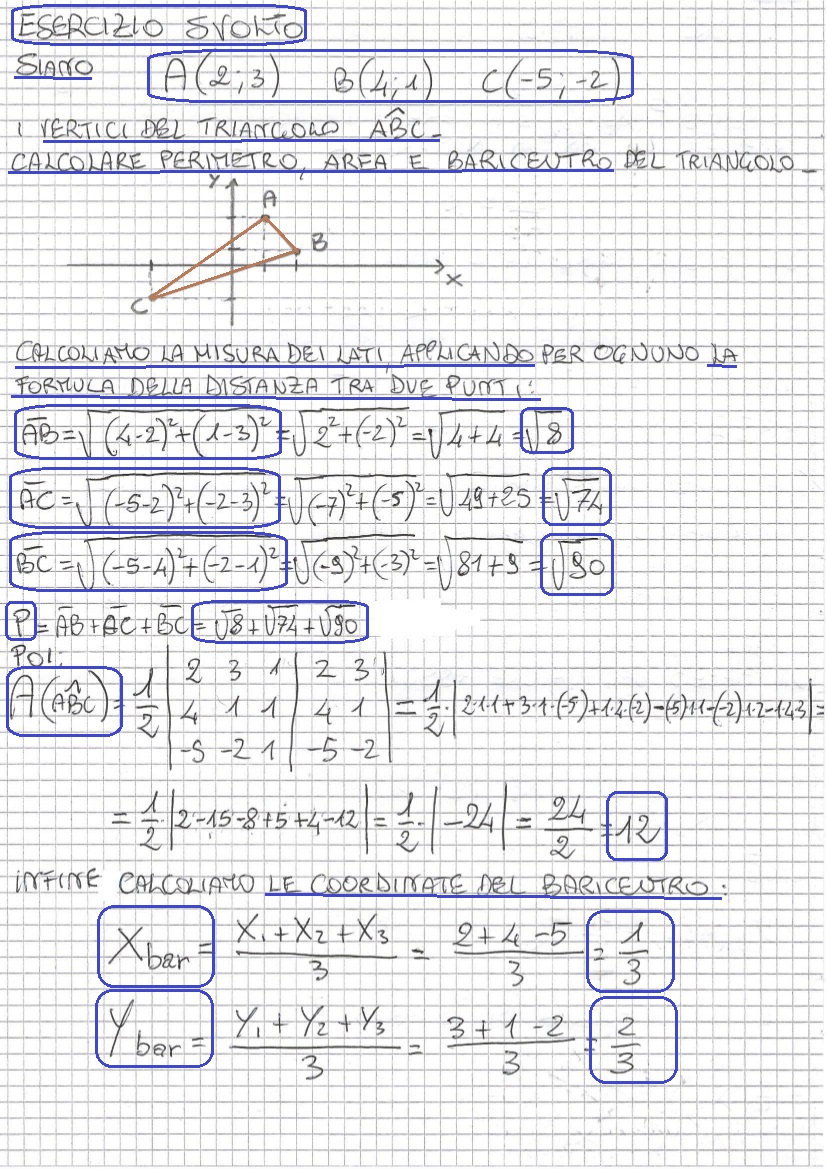 ESERCIZIO SVOLTO
SIANO A(2;3) B(4;1) C(-5;-2)
I VERTICI DEL TRIANGOLO AB̂C.
CALCOLARE PERIMETRO, AREA E BARICENTRO DEL TRIANGOLO.
Y
A
B
X
C
CALCOLIAMO LA MISURA DEI LATI, APPLICANDO PER OGNUNO LA
FORMULA DELLA DISTANZA TRA DUE PUNTI:
A̅B̅=√((4-2)²+(1-3)²)=√(2²+(-2)²)=√(4+4)=√8
A̅C̅=√((-5-2)²+(-2-3)²)=√((-7)²+(-5)²)=√(49+25)=√74
B̅C̅=√((-5-4)²+(-2-1)²)=√((-9)²+(-3)²)=√(81+9)=√90
P=A̅B̅+A̅C̅+B̅C̅=√8+√74+√90
POI:
A(AB̂C)=1/2 |2 3 1|2 3
4 1 1|4 1
-5 -2 1|-5 -2 =1/2·|2·1·1+3·1·(-5)+1·4·(-2)-(-5)·1·1-(-2)·1·2-1·4·3|=
=1/2·|2-15-8+5+4-12|=1/2·|-24|=24/2=12
INFINE CALCOLIAMO LE COORDINATE DEL BARICENTRO:
Xbar=(X₁+X₂+X₃)/3=(2+4-5)/3=1/3
Ybar=(Y₁+Y₂+Y₃)/3=(3+1-2)/3=2/3